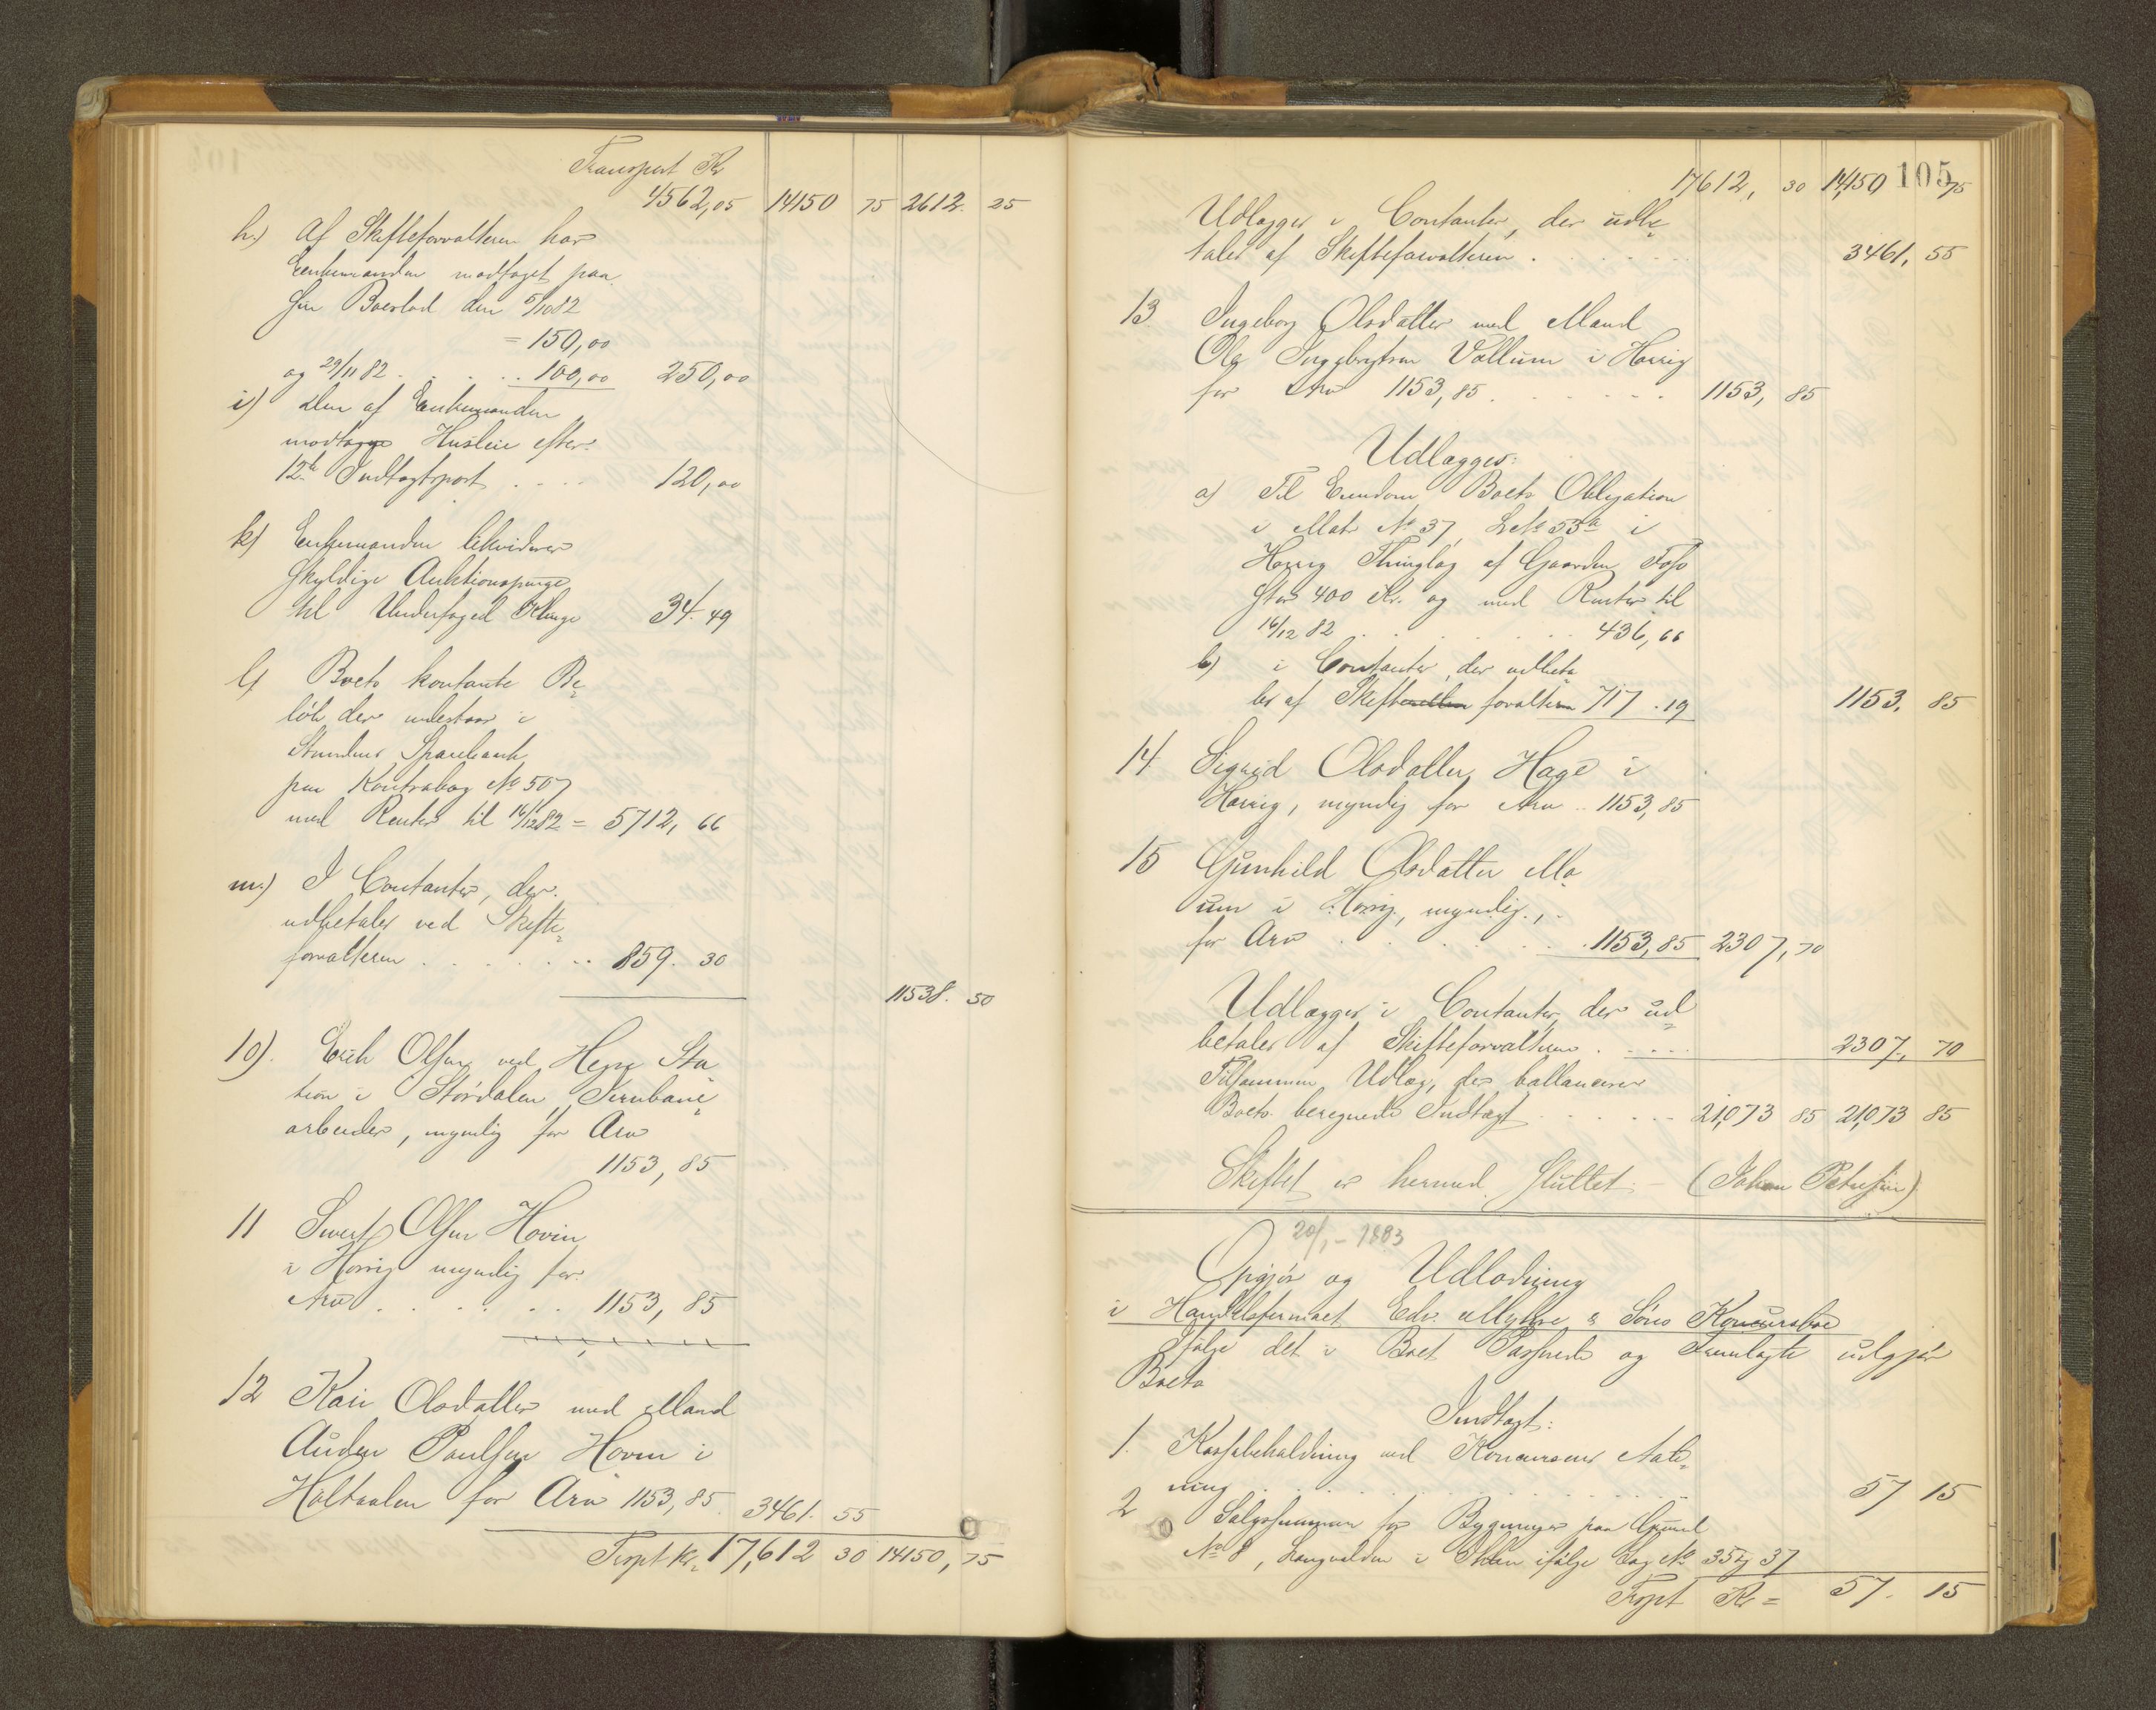 Transport Kr
4562,05 14150 75 2612. 25
h.) Af Skifteforvalteren har
Enkemanden modtaget paa
sin Boeslod den 5/10 82
= 150,00
og 29/11 82 . . . . 100,00 250,00
i) Den af Enkemanden
modtagne Husleie efter
12te Indtægtspost . . . . 120,00
k) Enkemanden likviderer
skyldige Auktionspenge
til Underfoged Klinge 34.49
l) Boets kontante Be-
løb der indestaar i
Sparebank
paa Kontrabog No 507
med Renter til 16/12 82 = 5712,66
m.) I Contanter, der
udbetales ved Skifte-
forvalteren . . . . . . 859. 30
11538. 50
10). Erik Olsen ved Sta-
tion i Stördalen, Jernbane-
arbeider, myndig for Arv
1153,85
11 Sivert Olsen Hovin
i Horrig myndig for
Arv . . . . . . 1153,85
12 Kari Olsdatter med Mand
Auden Paulsen Hovin i
Holtaalen for Arv 1153,85 3461. 55
Trspt Kr. 17,612 30 14150,75
105
17612, 30 14,150 75
Udlægges i Contanter, der udbe-
tales af Skifteforvalteren . . . . . 3461, 55
13 Ingeborg Olsdatter med Mand
Ole Ingebrigtsen Vollum i Horrig
for Arv 1153,85 . . . . . . 1153, 85
Udlægges:
a) Til Eiendom Boets Obligation
i Matr No 37, LNo 53a i
Horrig Thinglag af Gaarden Foss
stor 400 Kr. og med Renter til
16/12 82 . . . . . . 436,66
b) i Contanter, der udbeta-
les af Skifteforvalteren 717.19 1153. 85
14 Sigrid Olsdatter Hage i
Horrig, myndig for Arv .. 1153,85
15 Gunhild Olsdatter Mo-
um i Horrig, myndig,
for Arv . . . . . . 1153,85 2307,70
Udlægges i Contanter, der ud-
betales af Skifteforvalteren . . . . . 2307, 70
Tilsammen Udlæg, der ballancerer
Boets beregnede Indtægt . . . . . . 21,073 85 21,073 85
Skiftet er hermed sluttet. – (Johan Petersen)
20/1 – 1883
Opgjör og Udlodning
i Handelsfirmaet Edv. Myhre & Söns Konkursbo
Ifølge det i Boet Passerede og Fremlagte udgjør
Boets
Indtægt:
1. Kassabeholdning ved Koncursens Aab-
ning . . . . . . . . . . . 57 15
2 Salgssummen for Bygninger paa Grund
No 8, i Ihlen ifølge Lag No 35 og 37
Trspt Kr = 57. 15